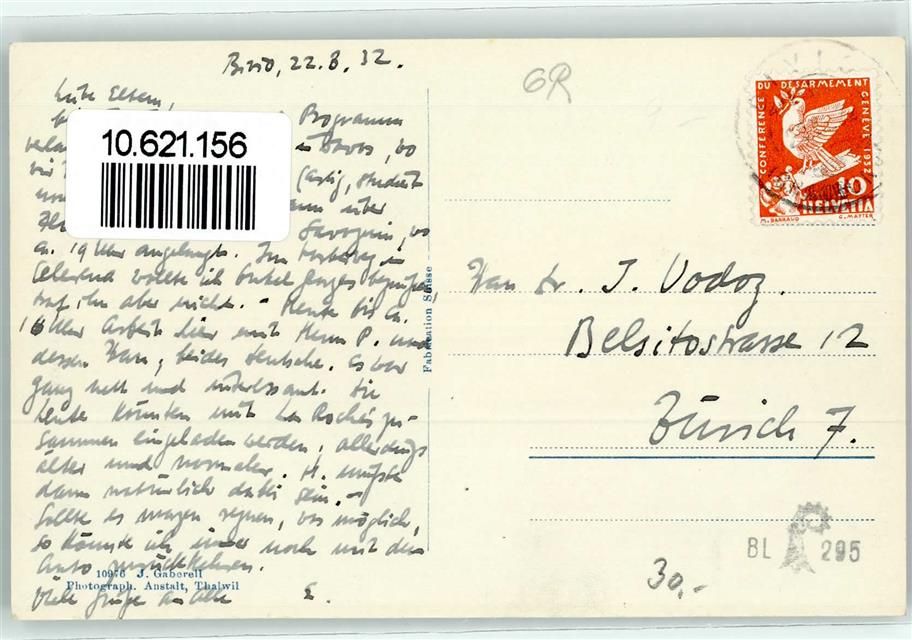 Bivio, 22.8.32.
GR
Liebe Eltern,
Programm
Davos, wo
10.621.156
(artig, studiert
dann über
Savognin, wo
ca. 19 Uhr angelangt. Im Vorbeiweg in
Celerina wollte ich Onkel Georges begrüssen,
traf ihn aber nicht. - Heute bis ca.
16 Uhr Arbeit hier mit Herrn P. und
dessen Frau, beides Deutsche. Es war
ganz nett und interessant. Die
Leute könnten mit La Roche's zu-
sammen eingeladen werden, allerdings
älter und normaler. H. müsste
dann natürlich dabei sein. -
Sollte es morgen regnen, was möglich,
so könnte ich immer noch mit dem
Auto zurückkehren.
Viele Grüße an alle E.
10976 J. Gaberell
Photograph. Anstalt, Thalwil
Fabrication Suisse
CONFÉRENCE DU DÉSARMEMENT GENÈVE 1932
10
HELVETIA
M. BARRAUD G. MATTER
Frau Dr. J. Vodoz.
Belsitostrasse 12
Zürich 7.
BL 295
30,-